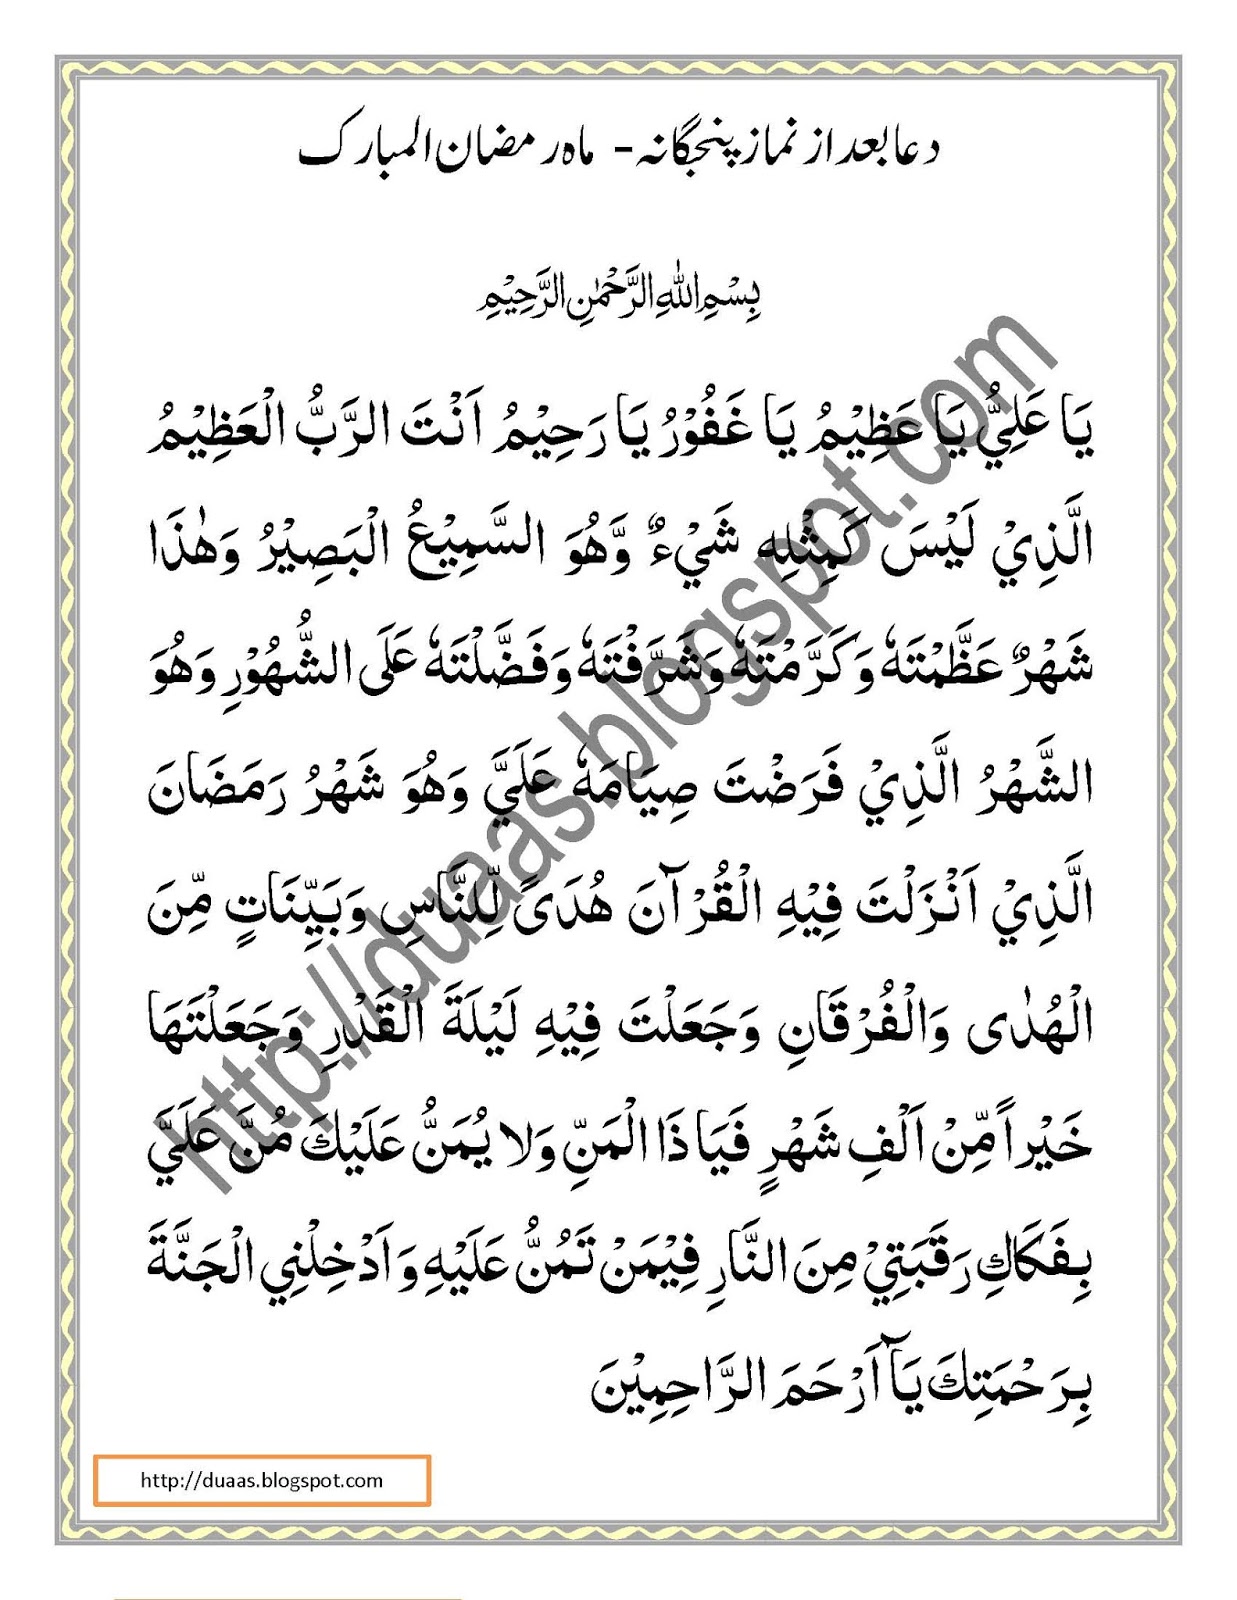 دعا بعد از نماز پنجگانہ - ماہ رمضان المبارک
بِسْمِ اللّٰهِ الرَّحْمٰنِ الرَّحِيْمِ
يَا عَلِيُّ يَا عَظِيْمُ يَا غَفُوْرُ يَا رَحِيْمُ اَنْتَ الرَّبُّ الْعَظِيْمُ
الَّذِيْ لَيْسَ كَمِثْلِهٖ شَيْءٌ وَّهُوَ السَّمِيْعُ الْبَصِيْرُ وَهٰذَا
شَهْرٌ عَظَّمْتَهٗ وَكَرَّمْتَهٗ وَشَرَّفْتَهٗ وَفَضَّلْتَهٗ عَلَى الشُّهُوْرِ وَهُوَ
الشَّهْرُ الَّذِيْ فَرَضْتَ صِيَامَهٗ عَلَيَّ وَهُوَ شَهْرُ رَمَضَانَ
الَّذِيْ اَنْزَلْتَ فِيْهِ الْقُرْآنَ هُدًى لِّلنَّاسِ وَبَيِّنَاتٍ مِّنَ
الْهُدٰى وَالْفُرْقَانِ وَجَعَلْتَ فِيْهِ لَيْلَةَ الْقَدْرِ وَجَعَلْتَهَا
خَيْراً مِّنْ اَلْفِ شَهْرٍ فَيَا ذَا الْمَنِّ وَلا يُمَنُّ عَلَيْكَ مُنَّ عَلَيَّ
بِفَكَاكِ رَقَبَتِيْ مِنَ النَّارِ فِيْمَنْ تَمُنُّ عَلَيْهِ وَاَدْخِلْنِي الْجَنَّةَ
بِرَحْمَتِكَ يَآ اَرْحَمَ الرَّاحِمِيْنَ
http://duaas.blogspot.com
http://duaas.blogspot.com